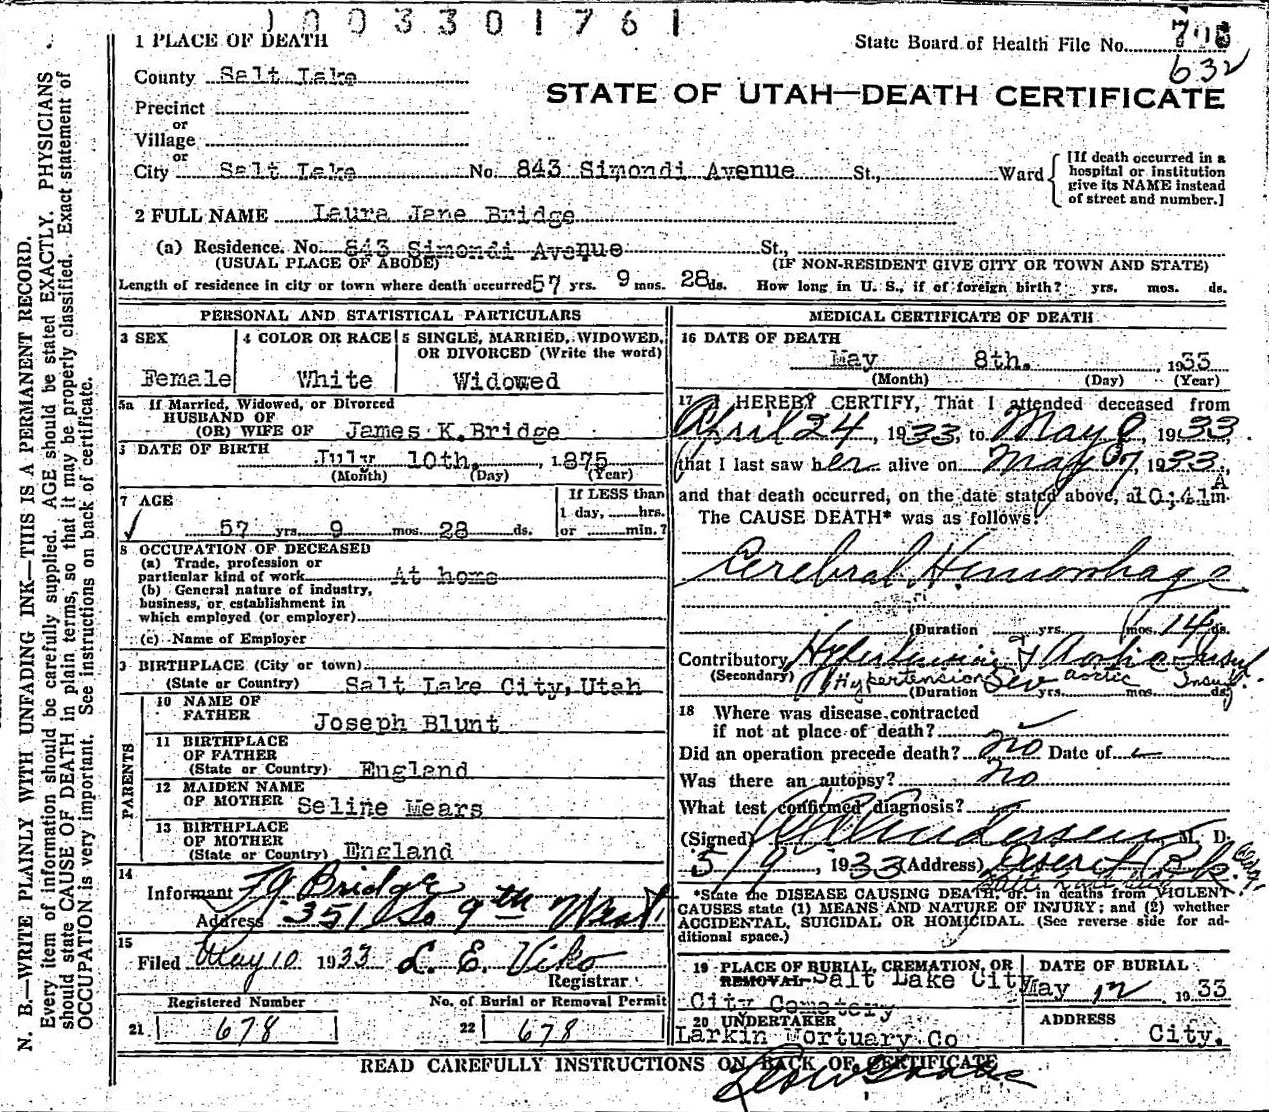 1003301761
1 PLACE OF DEATH
State Board of Health File No.
632
County Salt Lake
STATE OF UTAH—DEATH CERTIFICATE
Precinct
or
Village
or
City Salt Lake No. 843 Simondi Avenue St., Ward
[If death occurred in a
hospital or institution
give its NAME instead
of street and number.]
2 FULL NAME Laura Jane Bridge
(a) Residence. No. 843 Simondi Avenue St.,
(USUAL PLACE OF ABODE) (IF NON-RESIDENT GIVE CITY OR TOWN AND STATE)
Length of residence in city or town where death occurred 57 yrs. 9 mos. 28 ds. How long in U. S., if of foreign birth? yrs. mos. ds.
PERSONAL AND STATISTICAL PARTICULARS
3 SEX 4 COLOR OR RACE 5 SINGLE, MARRIED, WIDOWED,
OR DIVORCED (Write the word)
Female White Widowed
5a If Married, Widowed, or Divorced
HUSBAND OF
(OR) WIFE OF James K. Bridge
DATE OF BIRTH July 10th, 1875
(Month) (Day) (Year)
7 AGE If LESS than
1 day, hrs.
57 yrs. 9 mos. 28 ds. or min.?
8 OCCUPATION OF DECEASED
(a) Trade, profession or
particular kind of work At home
(b) General nature of industry,
business, or establishment in
which employed (or employer)
(c) Name of Employer
9 BIRTHPLACE (City or town)
(State or Country) Salt Lake City, Utah
PARENTS
10 NAME OF
FATHER Joseph Blunt
11 BIRTHPLACE
OF FATHER
(State or Country) England
12 MAIDEN NAME
OF MOTHER Seline Mears
13 BIRTHPLACE
OF MOTHER
(State or Country) England
14
Informant Bridge
Address 351 So 9th West
15
Filed May 10 1933 L. E. Viko
Registrar
Registered Number No. of Burial or Removal Permit
21 678 22 678
MEDICAL CERTIFICATE OF DEATH
16 DATE OF DEATH
May 8th. 1933
(Month) (Day) (Year)
17 I HEREBY CERTIFY, That I attended deceased from
April 24, 1933, to May 8 1933,
that I last saw her alive on May 7, 1933,
and that death occurred, on the date stated above, at 10:41 A m.
The CAUSE DEATH* was as follows:
Cerebral Hemorrhage
(Duration yrs. mos. 14 ds.
Contributory Hypertension & Aortic Insuf.
(Secondary) Hypertension aortic Insuf
(Duration Sev yrs. mos. ds.
18 Where was disease contracted
if not at place of death?
Did an operation precede death? No Date of
Was there an autopsy? no
What test confirmed diagnosis?
(Signed) Andersen M. D.
5/9, 1933 (Address) Deseret Bk.
*State the DISEASE CAUSING DEATH, or, in deaths from VIOLENT
CAUSES state (1) MEANS AND NATURE OF INJURY; and (2) whether
ACCIDENTAL, SUICIDAL OR HOMICIDAL. (See reverse side for ad-
ditional space.)
19 PLACE OF BURIAL, CREMATION, OR DATE OF BURIAL
REMOVAL Salt Lake City May 12 1933
City Cemetery
20 UNDERTAKER ADDRESS
Larkin Mortuary Co City.
READ CAREFULLY INSTRUCTIONS ON BACK OF CERTIFICATE
N. B.—WRITE PLAINLY WITH UNFADING INK—THIS IS A PERMANENT RECORD.
Every item of information should be carefully supplied. AGE should be stated EXACTLY. PHYSICIANS
should state CAUSE OF DEATH in plain terms, so that it may be properly classified. Exact statement of
OCCUPATION is very important. See instructions on back of certificate.